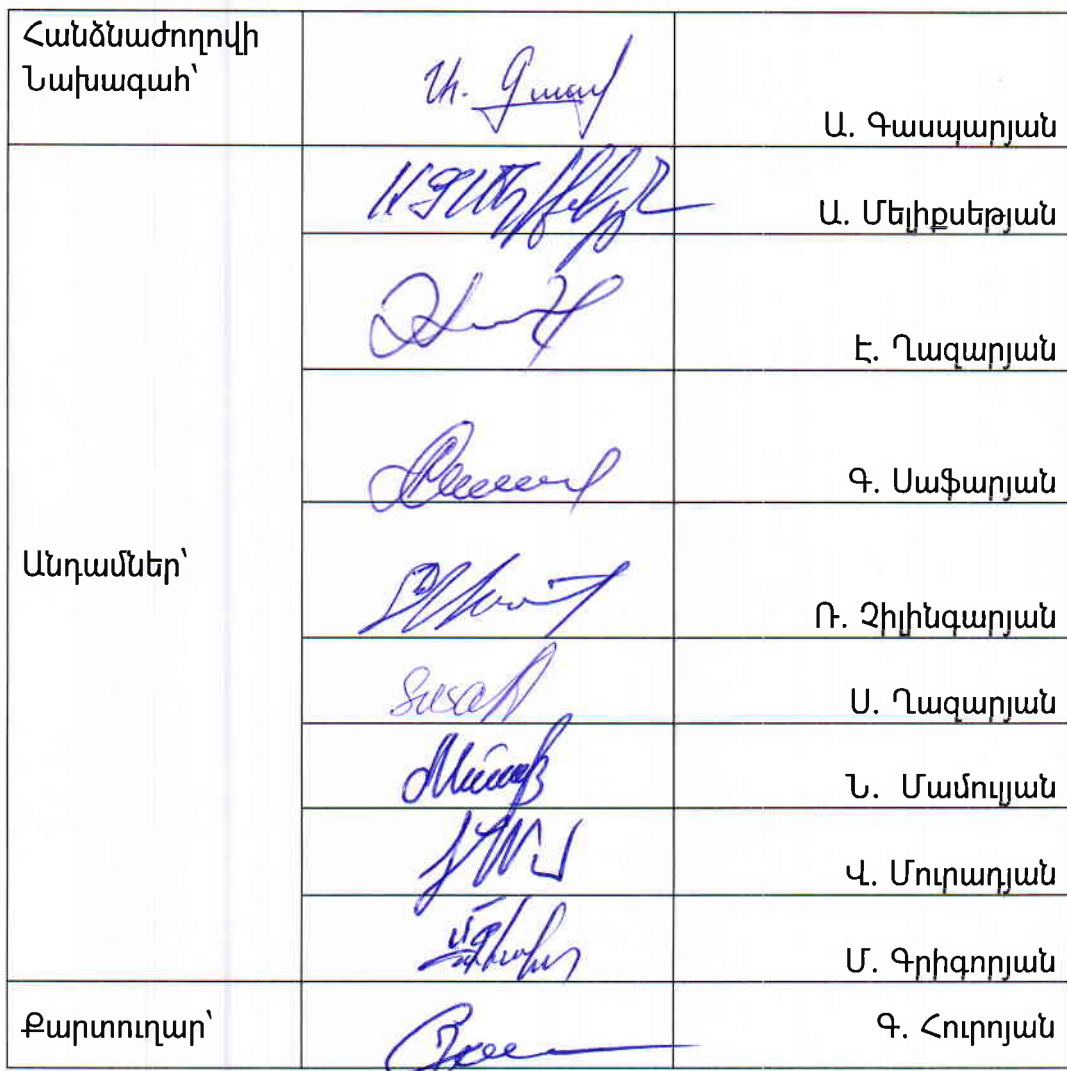 Հանձնաժողովի
Նախագահ՝
Ա. Գասպարյան
Ա. Մելիքսեթյան
Է. Ղազարյան
Գ. Սաֆարյան
Անդամներ՝
Ռ. Չիլինգարյան
Ս. Ղազարյան
Ն. Մամուլյան
Վ. Մուրադյան
Մ. Գրիգորյան
Քարտուղար՝
Գ. Հուրոյան